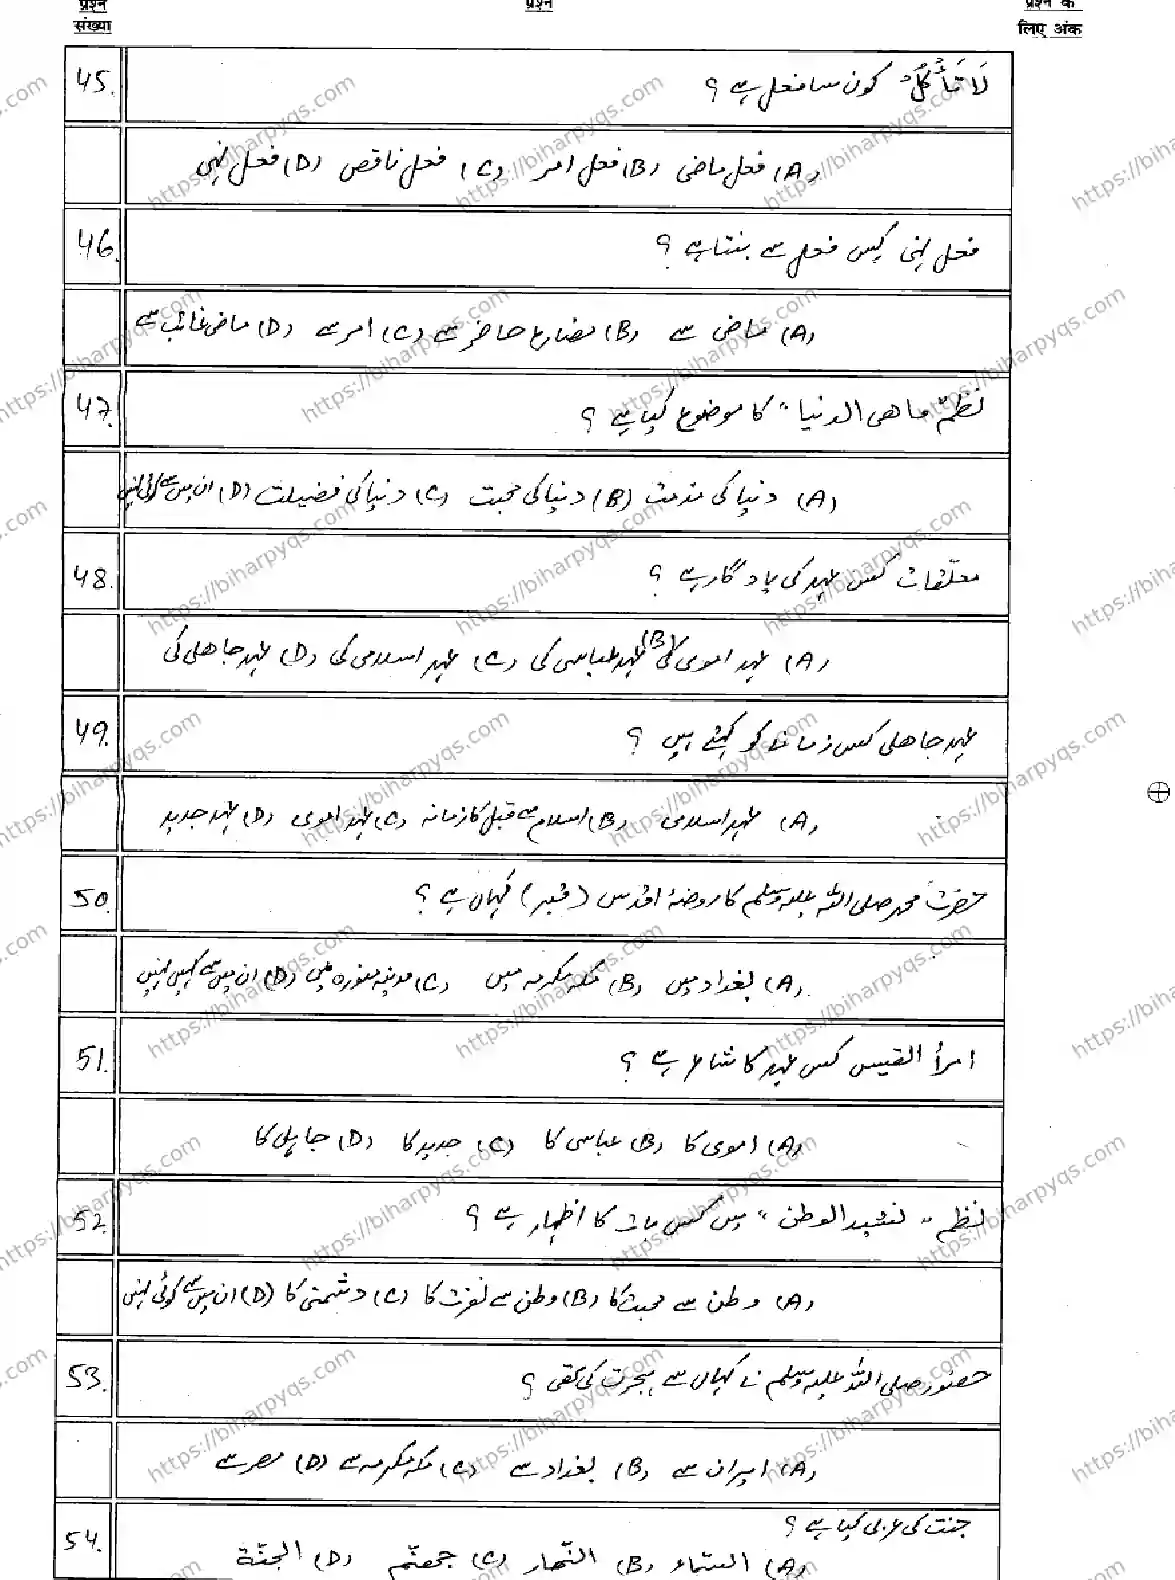 प्रश्न संख्या
प्रश्न
प्रश्न के लिए अंक
45. لَا تَأْكُلْ کون سا فعل ہے ؟
(A) فعل ماضی (B) فعل امر (C) فعل ناقص (D) فعل نہی
46. فعل نہی کس فعل سے بنتا ہے ؟
(A) ماضی سے (B) مضارع حاضر سے (C) امر سے (D) ماضی غائب سے
47. نظم "ماھی الدنیا" کا موضوع کیا ہے ؟
(A) دنیا کی مذمت (B) دنیا کی محبت (C) دنیا کی فضیلت (D) ان میں سے کوئی نہیں
48. معلّقات کس عہد کی یادگار ہے ؟
(A) عہد اموی کی (B) عہد عباسی کی (C) عہد اسلامی کی (D) عہد جاھلی کی
49. عہد جاھلی کس زمانے کو کہتے ہیں ؟
(A) عہد اسلامی (B) اسلام سے قبل کا زمانہ (C) عہد اموی (D) عہد جدید
50. حضرت محمد صلی اللہ علیہ وسلم کا روضۂ اقدس (قبر) کہاں ہے ؟
(A) بغداد میں (B) مکہ مکرمہ میں (C) مدینہ منورہ میں (D) ان میں سے کہیں نہیں
51. امرأ القیس کس عہد کا شاعر ہے ؟
(A) اموی کا (B) عباسی کا (C) جدید کا (D) جاہلی کا
52. نظم "نشید الوطن" میں کس بات کا اظہار ہے ؟
(A) وطن سے محبت کا (B) وطن سے نفرت کا (C) دشمنی کا (D) ان میں سے کوئی نہیں
53. حضور صلی اللہ علیہ وسلم نے کہاں سے ہجرت کی تھی ؟
(A) ایران سے (B) بغداد سے (C) مکہ مکرمہ سے (D) مصر سے
54. جنت کی عربی کیا ہے ؟
(A) السماء (B) النّھار (C) جھنّم (D) الجنّة
https://biharpyqs.com